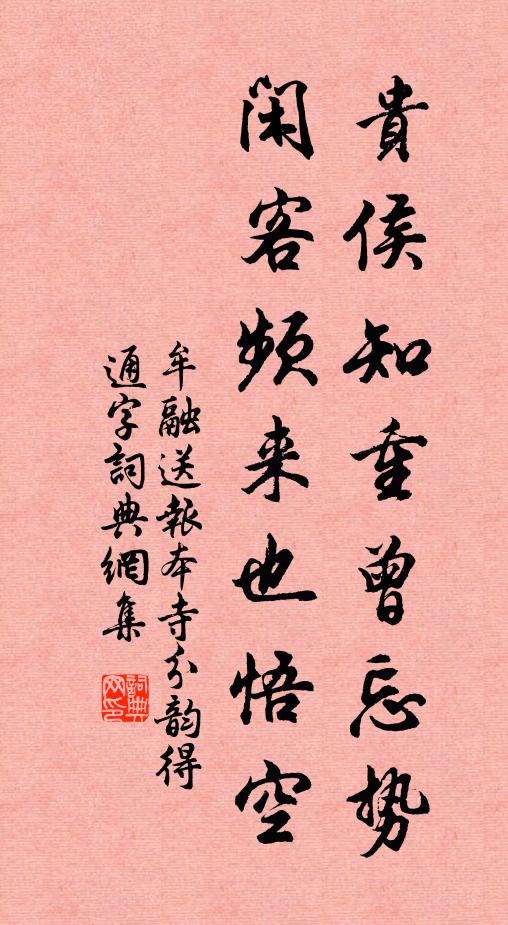 貴侯知重曾忘势
閑客頻来也悟空
牟融送報本寺分韵得
通字詞典網集
詞典网印